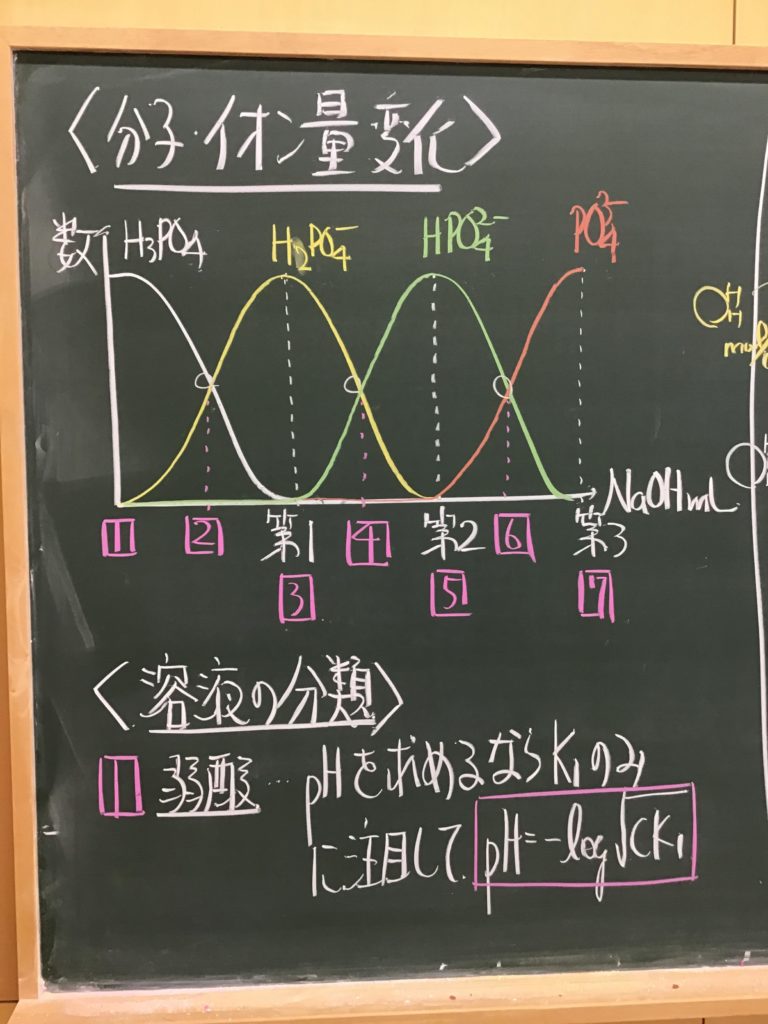 〈分子・イオン量変化〉
数 H₃PO₄ H₂PO₄⁻ HPO₄²⁻ PO₄²⁻
NaOH mL
1 2 第1 4 第2 6 第3
3 5 7
OH
H
〈溶液の分類〉
1 弱酸 … pHを求めるならK₁のみ
に注目して pH=-log√CK₁